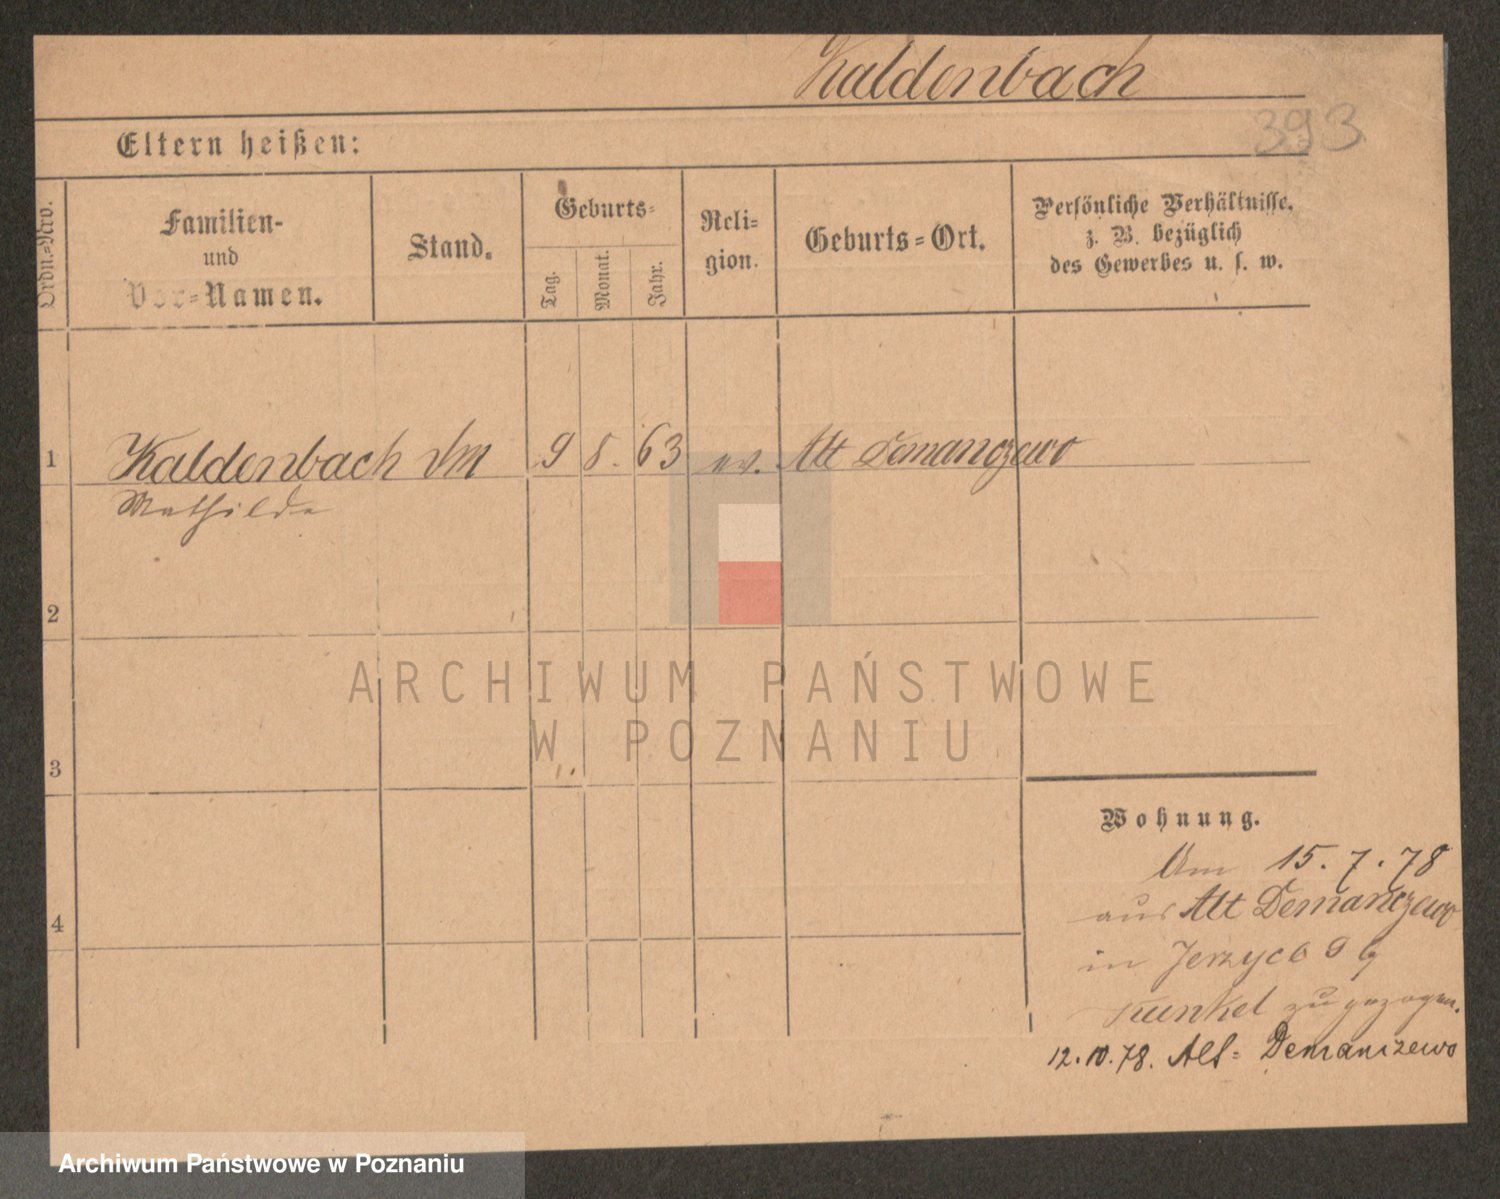 Kaldenbach
393
Eltern heißen:
Ordn.=Nro.
Familien-
und
Vor=Namen.
Stand.
Geburts=
Tag.
Monat.
Jahr.
Reli=
gion.
Geburts=Ort.
Persönliche Verhältnisse,
z. B. bezüglich
des Gewerbes u. s. w.
1 Kaldenbach 9 8. 63 ev. Alt Demanczewo
Mathilde
2
3
4
Wohnung.
Am 15. 7. 78
aus Alt Demanczewo
in Jerzyce 9 b
Kunkel zugezogen.
12.10.78. Alt= Demanczewo
ARCHIWUM PAŃSTWOWE
W POZNANIU
Archiwum Państwowe w Poznaniu